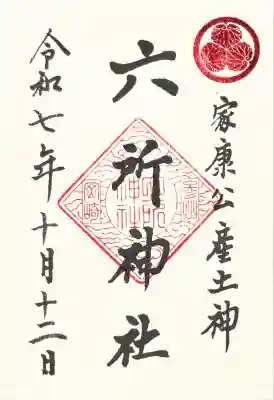 家康公産土神
六所神社
令和七年十月十二日
岡崎